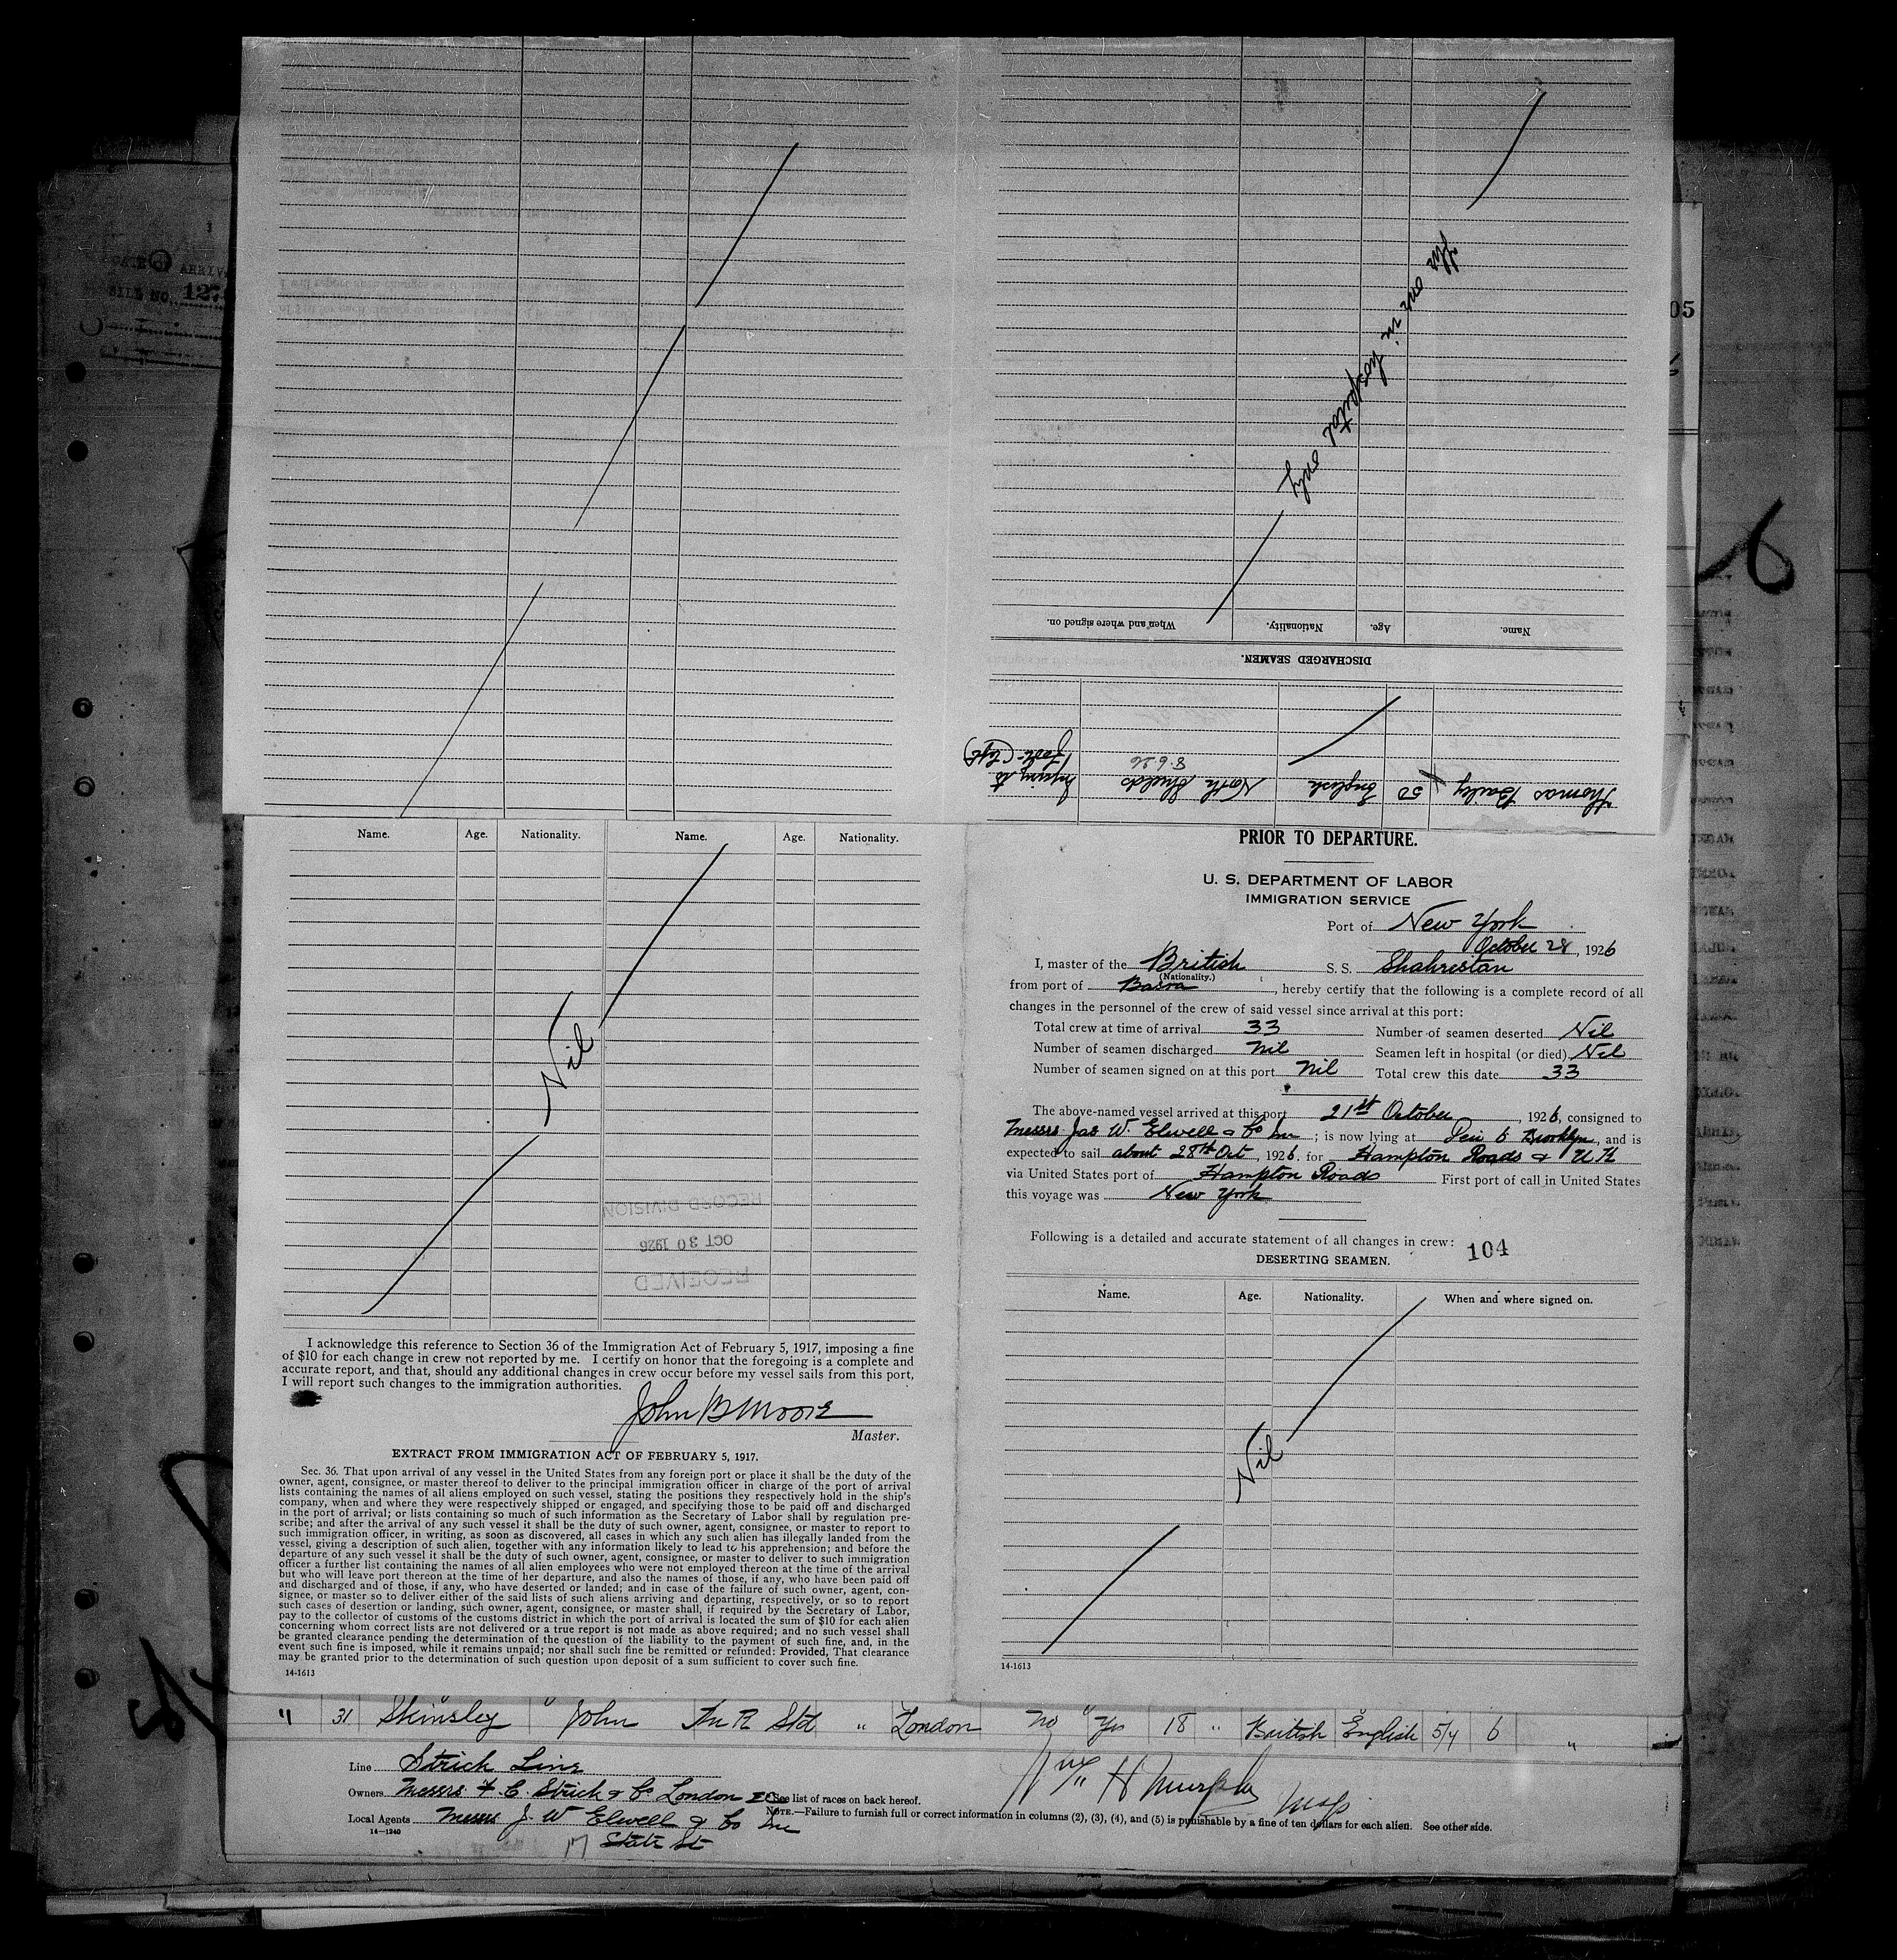 DATE OF ARRIV
FILE NO. 127
05
6
Thomas Baily 50 English North Shields 8.6.26 Injury to Foot (left)
DISCHARGED SEAMEN.
Name. Age. Nationality. When and where signed on.
one in hospital only
Name. Age. Nationality. Name. Age. Nationality.
Nil
RECEIVED
OCT 30 1926
RECORD DIVISION
I acknowledge this reference to Section 36 of the Immigration Act of February 5, 1917, imposing a fine
of $10 for each change in crew not reported by me. I certify on honor that the foregoing is a complete and
accurate report, and that, should any additional changes in crew occur before my vessel sails from this port,
I will report such changes to the immigration authorities.
John B Moore
Master.
EXTRACT FROM IMMIGRATION ACT OF FEBRUARY 5, 1917.
Sec. 36. That upon arrival of any vessel in the United States from any foreign port or place it shall be the duty of the
owner, agent, consignee, or master thereof to deliver to the principal immigration officer in charge of the port of arrival
lists containing the names of all aliens employed on such vessel, stating the positions they respectively hold in the ship's
company, when and where they were respectively shipped or engaged, and specifying those to be paid off and discharged
in the port of arrival; or lists containing so much of such information as the Secretary of Labor shall by regulation pre-
scribe; and after the arrival of any such vessel it shall be the duty of such owner, agent, consignee, or master to report to
such immigration officer, in writing, as soon as discovered, all cases in which any such alien has illegally landed from the
vessel, giving a description of such alien, together with any information likely to lead to his apprehension; and before the
departure of any such vessel it shall be the duty of such owner, agent, consignee, or master to deliver to such immigration
officer a further list containing the names of all alien employees who were not employed thereon at the time of the arrival
but who will leave port thereon at the time of her departure, and also the names of those, if any, who have been paid off
and discharged and of those, if any, who have deserted or landed; and in case of the failure of such owner, agent, con-
signee, or master so to deliver either of the said lists of such aliens arriving and departing, respectively, or so to report
such cases of desertion or landing, such owner, agent, consignee, or master shall, if required by the Secretary of Labor,
pay to the collector of customs of the customs district in which the port of arrival is located the sum of $10 for each alien
concerning whom correct lists are not delivered or a true report is not made as above required; and no such vessel shall
be granted clearance pending the determination of the question of the liability to the payment of such fine, and, in the
event such fine is imposed, while it remains unpaid; nor shall such fine be remitted or refunded: Provided, That clearance
may be granted prior to the determination of such question upon deposit of a sum sufficient to cover such fine.
14-1613
PRIOR TO DEPARTURE.
U. S. DEPARTMENT OF LABOR
IMMIGRATION SERVICE
Port of New York
October 28, 1926
I, master of the British S. S. Shahristan
(Nationality.)
from port of Basra, hereby certify that the following is a complete record of all
changes in the personnel of the crew of said vessel since arrival at this port:
Total crew at time of arrival 33 Number of seamen deserted Nil
Number of seamen discharged Nil Seamen left in hospital (or died) Nil
Number of seamen signed on at this port Nil Total crew this date 33
The above-named vessel arrived at this port 21st October, 1926, consigned to
Messrs Jas W. Elwell & Co Inc; is now lying at Pier 6 Brooklyn, and is
expected to sail about 28th Oct, 1926. for Hampton Roads & U K
via United States port of Hampton Roads First port of call in United States
this voyage was New York
Following is a detailed and accurate statement of all changes in crew:
104
DESERTING SEAMEN.
Name. Age. Nationality. When and where signed on.
Nil
14-1613
" 31 Skinsley John Std " London No Yes 18 " British English 5/4 6 "
Line Strick Line
Owners Messrs F. C. Strick & Co London E C
See list of races on back hereof.
H Murphy
NOTE.—Failure to furnish full or correct information in columns (2), (3), (4), and (5) is punishable by a fine of ten dollars for each alien. See other side.
Local Agents Messrs J. W Elwell & Co Inc
14-1240
17 State St